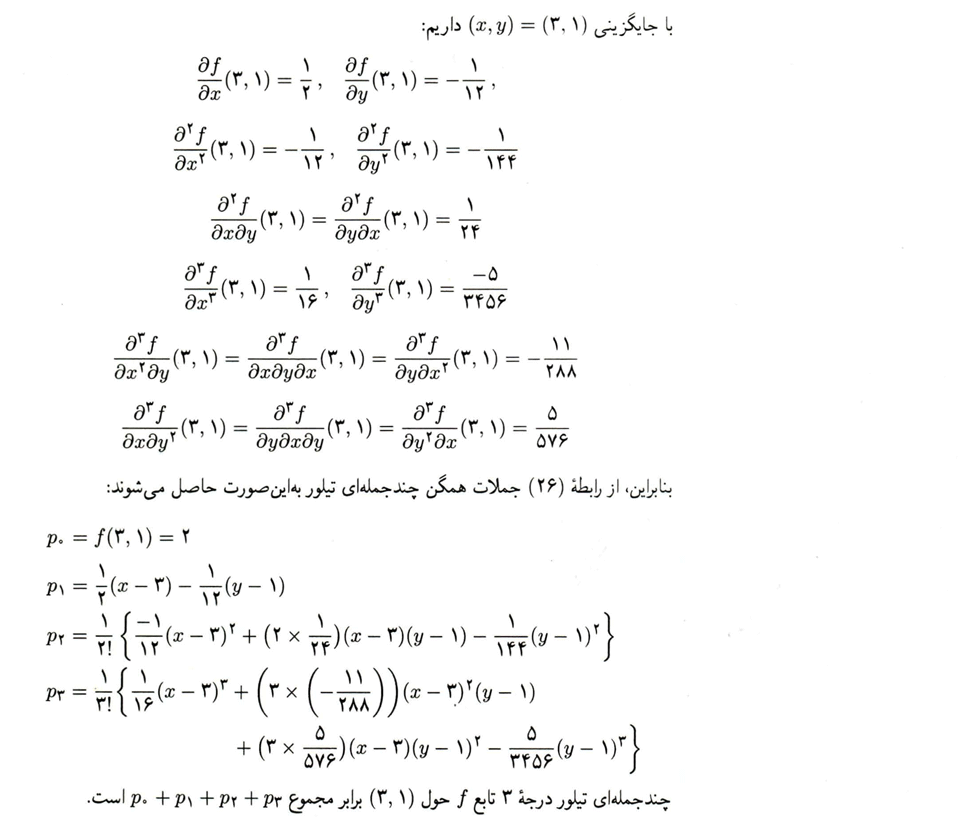 با جایگزینی (x, y) = (۳, ۱) داریم:
∂f/∂x (۳, ۱) = ۱/۲ , ∂f/∂y (۳, ۱) = −۱/۱۲ ,
∂^۲f/∂x^۲ (۳, ۱) = −۱/۱۲ , ∂^۲f/∂y^۲ (۳, ۱) = −۱/۱۴۴
∂^۲f/∂x∂y (۳, ۱) = ∂^۲f/∂y∂x (۳, ۱) = ۱/۲۴
∂^۳f/∂x^۳ (۳, ۱) = ۱/۱۶ , ∂^۳f/∂y^۳ (۳, ۱) = −۵/۳۴۵۶
∂^۳f/∂x^۲∂y (۳, ۱) = ∂^۳f/∂x∂y∂x (۳, ۱) = ∂^۳f/∂y∂x^۲ (۳, ۱) = −۱۱/۲۸۸
∂^۳f/∂x∂y^۲ (۳, ۱) = ∂^۳f/∂y∂x∂y (۳, ۱) = ∂^۳f/∂y^۲∂x (۳, ۱) = ۵/۵۷۶
بنابراین، از رابطهٔ (۲۶) جملات همگن چندجمله‌ای تیلور به‌این‌صورت حاصل می‌شوند:
p۰ = f(۳, ۱) = ۲
p۱ = ۱/۲ (x − ۳) − ۱/۱۲ (y − ۱)
p۲ = ۱/۲! { −۱/۱۲ (x − ۳)^۲ + (۲ × ۱/۲۴)(x − ۳)(y − ۱) − ۱/۱۴۴ (y − ۱)^۲ }
p۳ = ۱/۳! { ۱/۱۶ (x − ۳)^۳ + (۳ × (−۱۱/۲۸۸))(x − ۳)^۲(y − ۱)
+ (۳ × ۵/۵۷۶)(x − ۳)(y − ۱)^۲ − ۵/۳۴۵۶ (y − ۱)^۳ }
چندجمله‌ای تیلور درجهٔ ۳ تابع f حول (۳, ۱) برابر مجموع p۰ + p۱ + p۲ + p۳ است.